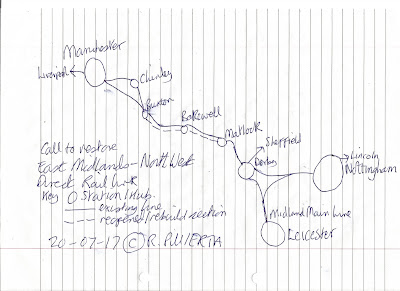 Manchester
Liverpool
Chinley
Buxton
Bakewell
Matlock
Sheffield
Derby
Lincoln
Nottingham
Midland Main Line
Leicester
Call to restore
East Midlands - North West
Direct Rail Link
Key O Station/Hub
existing line
reopened/rebuild section
20-07-17 © R. PILLERIA